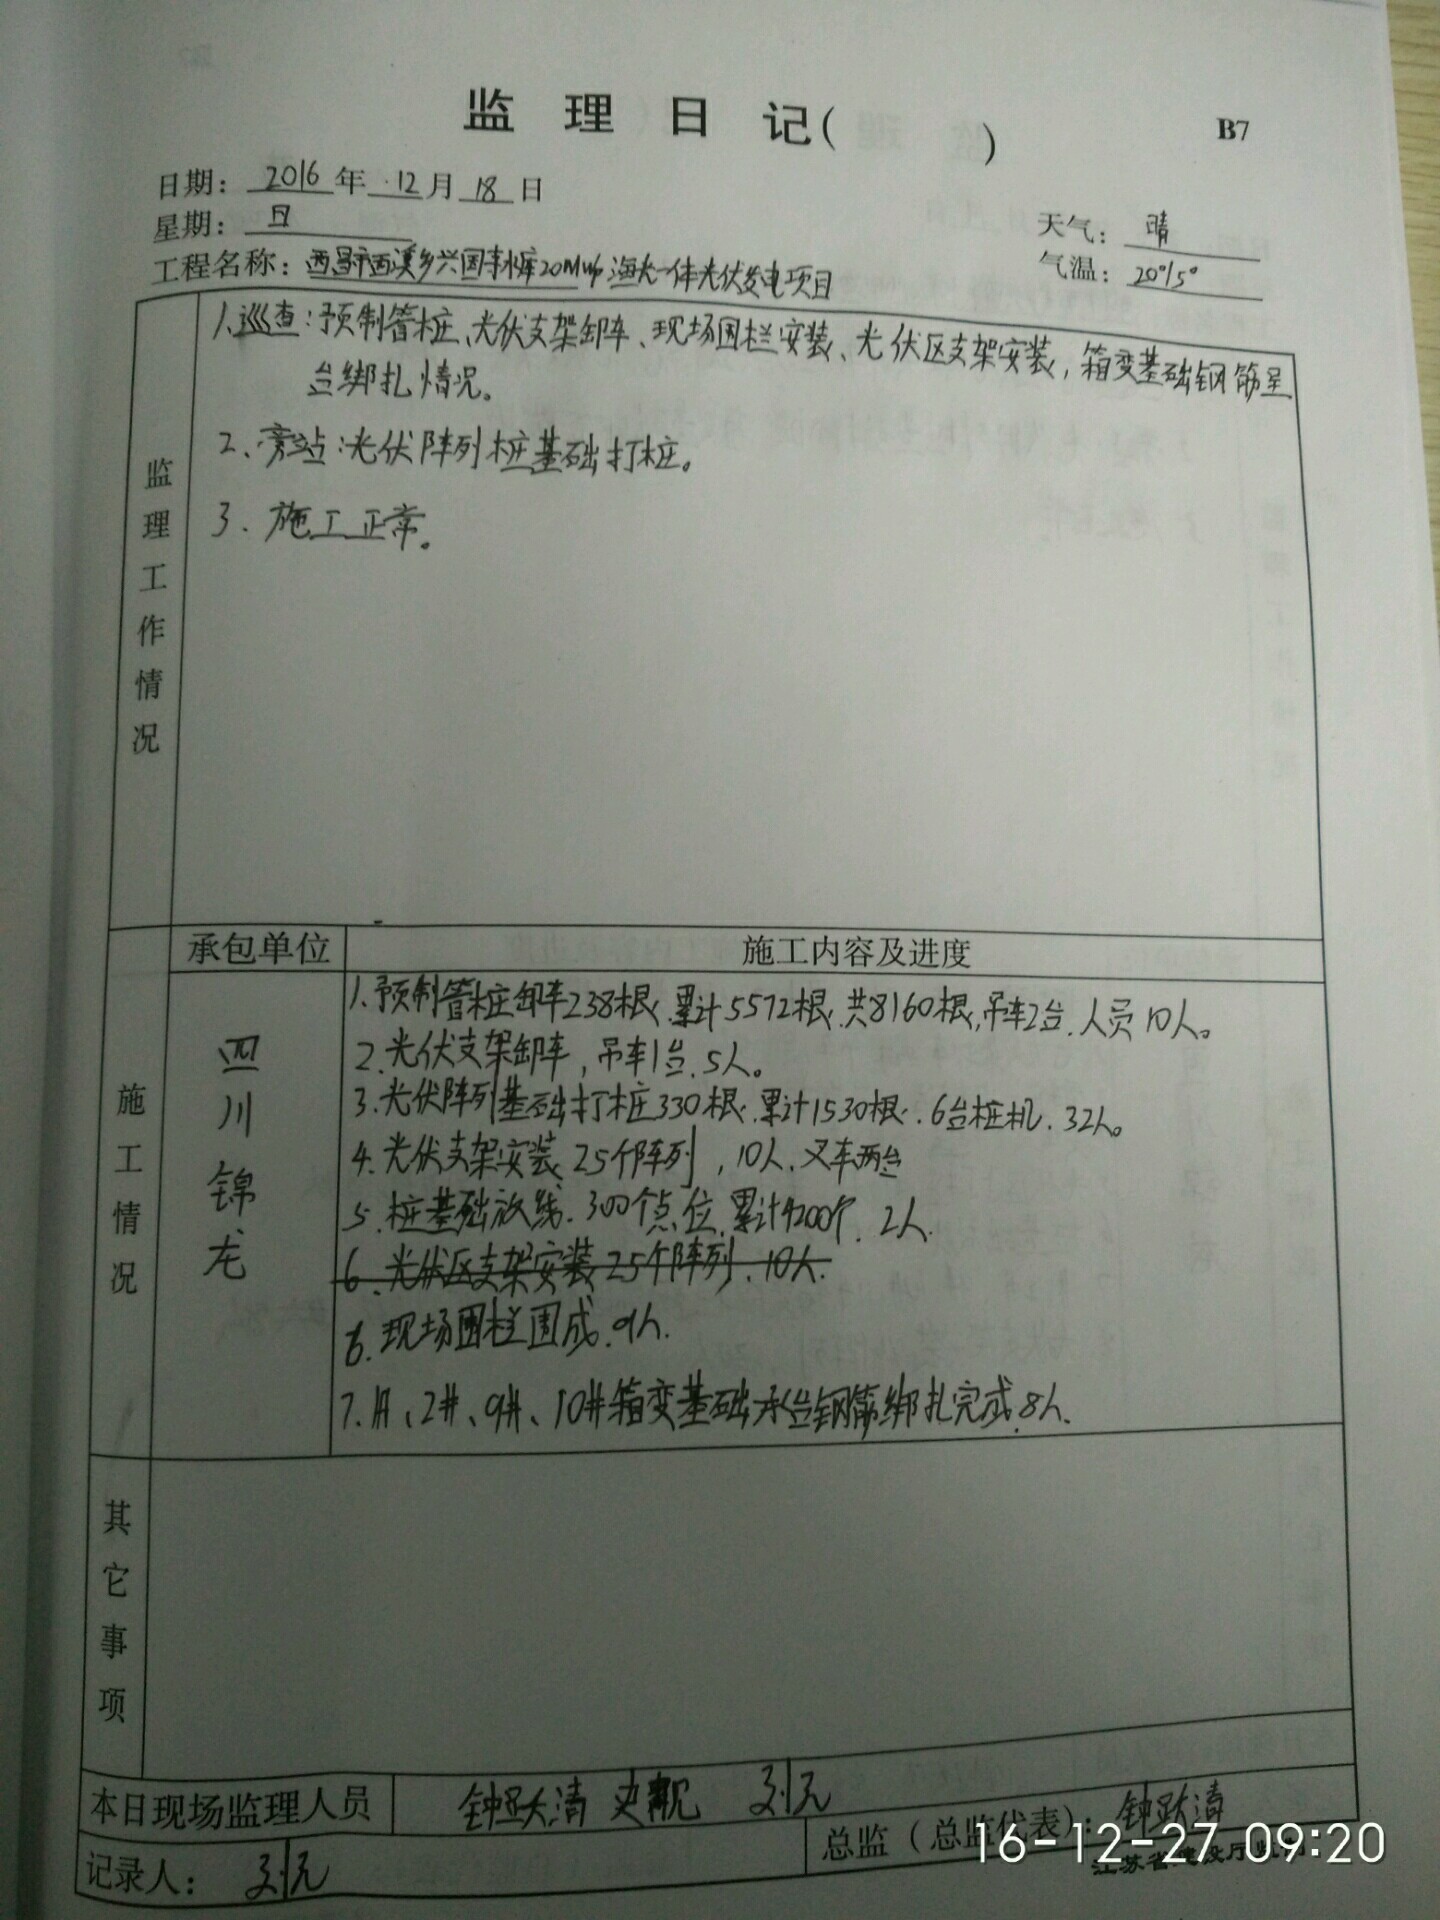 监理日记( )
B7
日期: 2016 年 12 月 18 日
星期: 日
天气: 晴
工程名称: 西昌市西溪乡兴国水库20MWp 渔光一体光伏发电项目
气温: 20°/5°
监理工作情况
1.巡查:预制管桩、光伏支架卸车、现场围栏安装、光伏区支架安装,箱变基础钢筋呈
台绑扎情况。
2、旁站:光伏阵列桩基础打桩。
3. 施工正常。
承包单位
施工内容及进度
施工情况
四川锦龙
1.预制管桩卸车238根,累计5572根,共8160根,吊车2台,人员10人。
2.光伏支架卸车,吊车1台、5人。
3.光伏阵列基础打桩330根,累计1530根,6台桩机、32人。
4.光伏支架安装 25个阵列,10人、叉车两台
5.桩基础放线、300个点位,累计4200个、2人.
6.光伏区支架安装 25个阵列、10人.
6.现场围栏围成、9人.
7.1#、2#、9#、10#箱变基础承台钢筋绑扎完成.8人.
其它事项
本日现场监理人员
钟跃清 史靓 刘元
总监(总监代表): 钟跃清
记录人: 刘元
16-12-27 09:20
江苏省建设厅监制